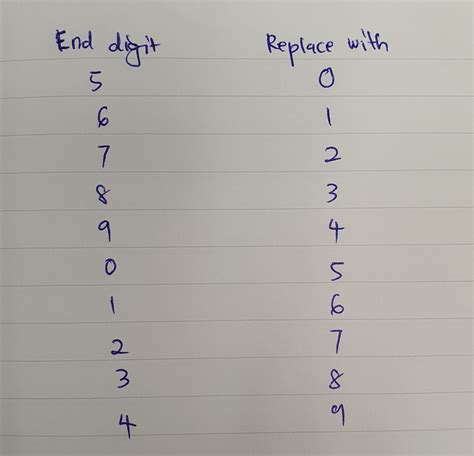 End digit Replace with
5 0
6 1
7 2
8 3
9 4
0 5
1 6
2 7
3 8
4 9